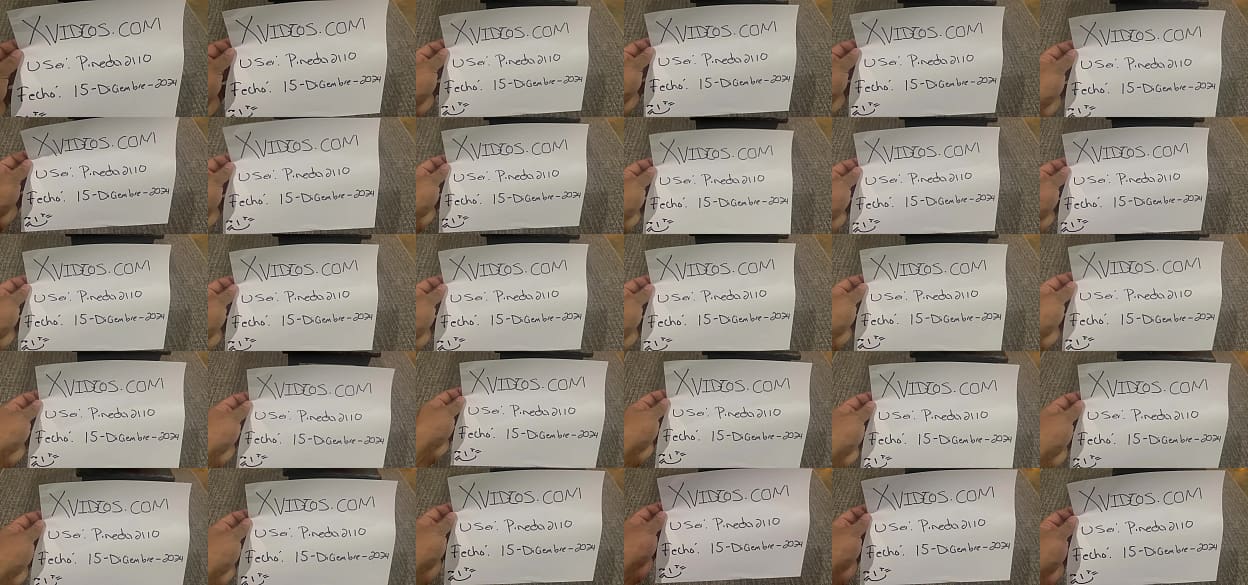 XVIDIOS.COM
User: Pineda2110
Fecha: 15-Diciembre-2024